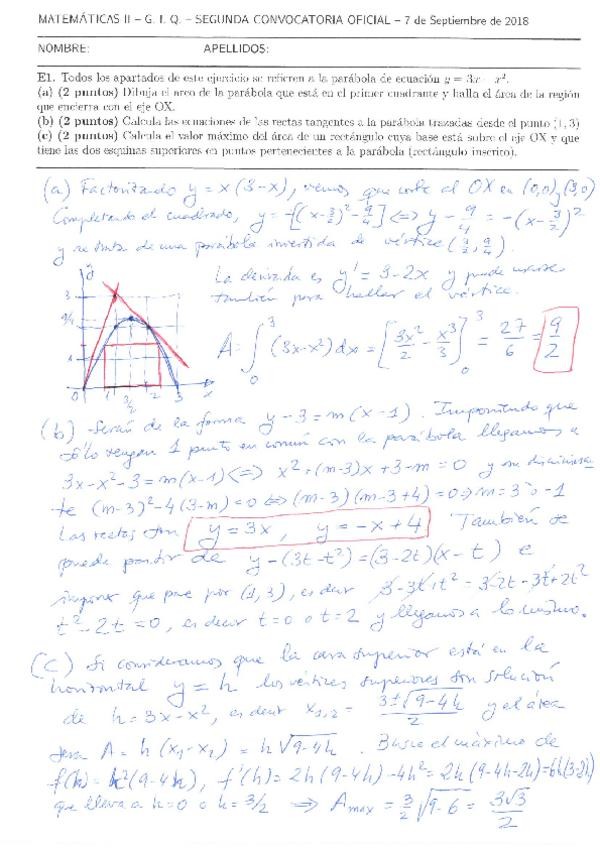 MATEMÁTICAS II – G. I. Q. – SEGUNDA CONVOCATORIA OFICIAL – 7 de Septiembre de 2018
NOMBRE: APELLIDOS:
E1. Todos los apartados de este ejercicio se refieren a la parábola de ecuación y = 3x − x².
(a) (2 puntos) Dibuja el arco de la parábola que está en el primer cuadrante y halla el área de la región
que encierra con el eje OX.
(b) (2 puntos) Calcula las ecuaciones de las rectas tangentes a la parábola trazadas desde el punto (1, 3)
(c) (2 puntos) Calcula el valor máximo del área de un rectángulo cuya base está sobre el eje OX y que
tiene las dos esquinas superiores en puntos pertenecientes a la parábola (rectángulo inscrito).
(a) Factorizando y = x(3-x), vemos que corta al OX en (0,0) y (3,0)
Completando el cuadrado, y = -[(x-3/2)² - 9/4] <=> y - 9/4 = -(x-3/2)²
y se trata de una parábola invertida de vértice (3/2, 9/4).
La derivada es y' = 3-2x y puede usarse
también para hallar el vértice.
y
3
9/4
1
0 1 3/2 2 3 x
A = ∫₀³ (3x-x²) dx = [3x²/2 - x³/3]₀³ = 27/6 = 9/2
(b) Serán de la forma y-3 = m(x-1). Imponiendo que
sólo tengan 1 punto en común con la parábola llegamos a
3x-x²-3 = m(x-1) <=> x²+(m-3)x+3-m = 0 y su discriminan
te (m-3)²-4(3-m) = 0 <=> (m-3)(m-3+4) = 0 => m = 3 ó -1
Las rectas son y = 3x, y = -x+4 También se
puede partir de y-(3t-t²) = (3-2t)(x-t) e
imponer que pase por (1,3), es decir 3-3t+t² = 3-2t-3t+2t²
t²-2t = 0, es decir t = 0 o t = 2 y llegamos a lo mismo.
(c) Si consideramos que la cara superior está en la
horizontal y = h los vértices superiores son solución
de h = 3x-x², es decir x₁,₂ = (3±√(9-4h))/2 y el área
será A = h(x₁-x₂) = h√(9-4h). Busco el máximo de
f(h) = h²(9-4h), f'(h) = 2h(9-4h)-4h² = 2h(9-4h-2h) = 6h(3-2h)
que lleva a h = 0 o h = 3/2 => Amax = 3/2 √(9-6) = 3√3/2